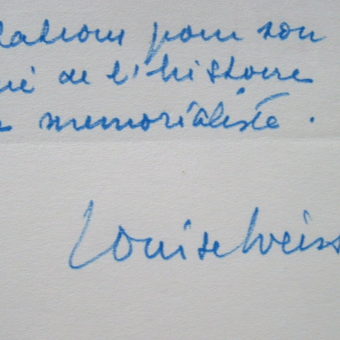 lations pour son
né de l'histoire
memorialiste.
Louise Weiss